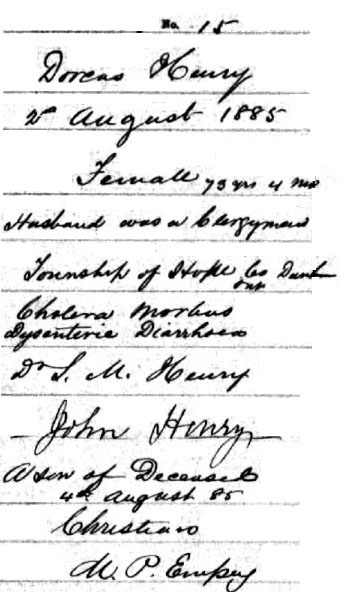 No. 15
Dorcas Henry
2nd August 1885
Female 73 yrs 4 mos
Husband was a Clergyman
Township of Hope Co
Cholera Morbus
Dysenteric Diarrhoea
Dr. S. M. Henry
John Henry
A son of Deceased
4th August 85
Christian
M. P. Empey